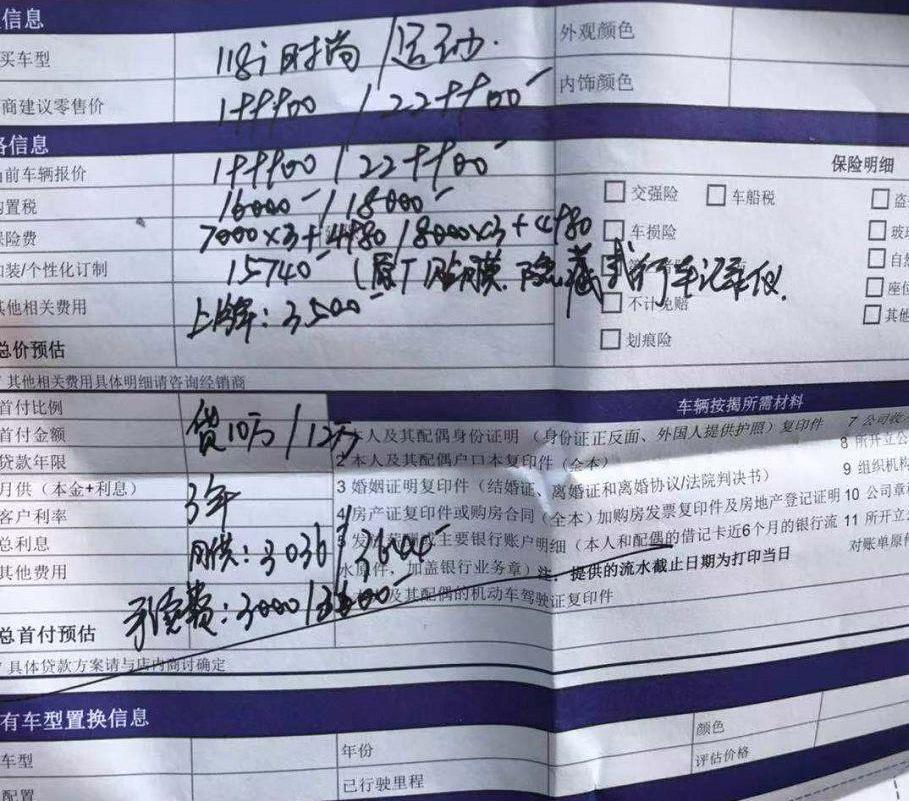 信息
买车型 118i 时尚 / 运动. 外观颜色
商建议零售价 199900 / 229900 内饰颜色
格信息
当前车辆报价 199900 / 229900 保险明细
购置税 16000 / 18000 □ 交强险 □ 车船税 □ 盗
保险费 7000×3+4980 / 8000×3+4980 □ 车损险 □ 玻
加装/个性化订制 15740 (原厂贴膜.隐藏式行车记录仪. □ 自然
其他相关费用 上牌: 3500 □ 不计免赔 □ 座位
总价预估 □ 划痕险 □ 其他
其他相关费用具体明细请咨询经销商
首付比例 车辆按揭所需材料
首付金额 贷10万 / 12万 本人及其配偶身份证明 (身份证正反面、外国人提供护照) 复印件 7 公司
贷款年限 2 本人及其配偶户口本复印件 (全本) 8 所开立公
月供 (本金+利息) 3年 3 婚姻证明复印件 (结婚证、离婚证和离婚协议/法院判决书) 9 组织机构
客户利率 4 房产证复印件或购房合同 (全本) 加购房发票复印件及房地产登记证明 10 公司章程
总利息 月供: 3036 / 3644 主要银行账户明细 (本人和配偶的借记卡近6个月的银行流 11 所开立
其他费用 水原件, 加盖银行业务章) 注: 提供的流水截止日期为打印当日 对账单原件
手续费: 3000 / 及其配偶的机动车驾驶证复印件
总首付预估
* 具体贷款方案请与店内商讨确定
有车型置换信息
车型 年份 颜色
配置 已行驶里程 评估价格